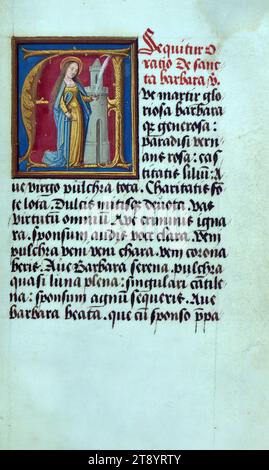 Sequitur o
ratio de sanc
ta barbara v.
Ave martir glo
riosa barbara
que generosa:
paradisi ver
nans rosa: cas
titatis lilium. A
ue virgo pulchra tota. Charitatis fo
te lota. Dulcis mitisque deuota. vas
virtutum omnium. Ave criminis igna
ra. sponsum audis voce clara. veni
pulchra veni veni chara. veni corona
beris. Ave Barbara serena. pulchra
quasi luna plena: singulari catile
na: sponsum agnum sequeris. Ave
barbara beata. que cum sponso ppa
alamy
Image ID: 2T8YRTY
www.alamy.com